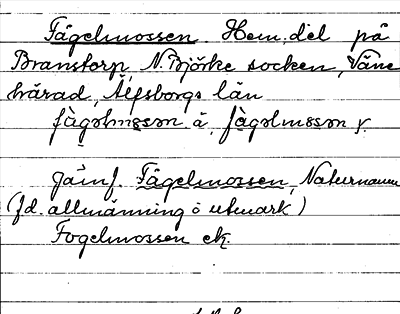 Fågelmossen. Hem.del på
Branstorp N. Björke socken, Väne
härad, Älfsborgs län
fågolmosson å, fågolmosson y.
Jämf. Fågelmossen, Naturnamn
(fd. allmänning o utmark)
Fogelmossen ek.